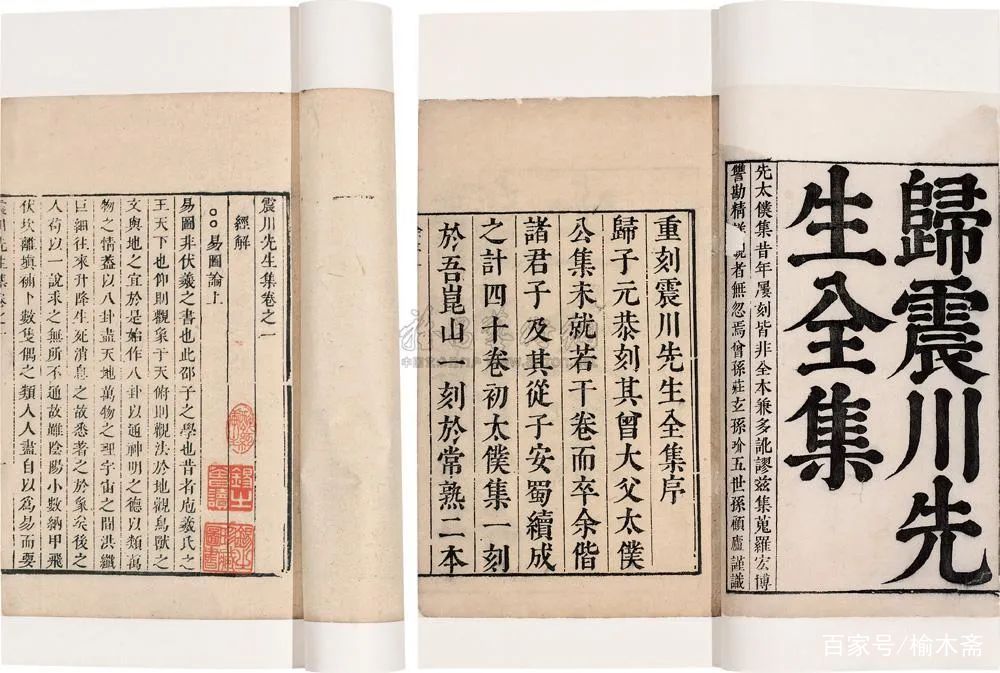 歸震川先
生全集
先太僕集昔年屢刻皆非全本兼多訛謬茲集蒐羅宏博
讐勘精
者無忽焉曾孫莊玄孫玠五世孫顧廬謹識
重刻震川先生全集序
歸子元恭刻其曾大父太僕
公集未就若干卷而卒余偕
諸君子及其從子安蜀續成
之計四十卷初太僕集一刻
於吾崑山一刻於常熟二本
震川先生集卷之一
經解
易圖論上
易圖非伏羲之書也此邵子之學也昔者庖羲氏之
王天下也仰則觀象于天俯則觀法於地觀鳥獸之
文與地之宜於是始作八卦以通神明之德以類萬
物之情蓋以八卦盡天地萬物之理宇宙之間洪纖
巨細往來升降生死消息之故悉著之於象矣後之
人苟以一說求之無所不通故雖陰陽小數納甲飛
伏坎離填補卜數隻偶之類人人盡自以爲易而要
震川先生集卷之一
百家号/榆木斋